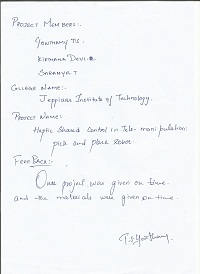 PROJECT MEMBERS:-
GOWTHAMY T.S
KIRTHANA DEVI. R
SARANYA T
COLLEGE NAME:-
Jeppiaar Institute of Technology.
PROJECT NAME:
Haptic Shared Control in Tele-manipulation:
pick and place Robot.
FEED BACK:-
Our project was given on time
and the materials was given on time.